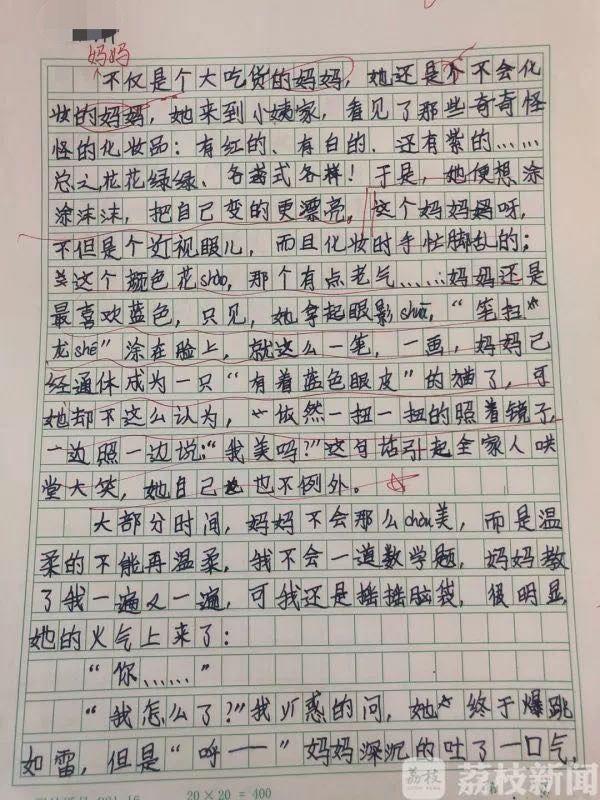 妈妈
不仅是个大吃货的妈妈，她还是个不会化
妆的妈妈，她来到小姨家，看见了那些奇奇怪
怪的化妆品：有红的、有白的、还有紫的……
总之花花绿绿、各式各样！于是，她便想涂
涂沫沫，把自己变的更漂亮，这个妈妈呀，
不但是个近视眼儿，而且化妆时手忙脚乱的；
这个颜色花shào，那个有点老气……妈妈还是
最喜欢蓝色，只见，她拿起眼影shuā，“笔扫
龙shé”涂在脸上，就这么一笔，一画，妈妈已
经通体成为一只“有着蓝色眼皮”的猫了，可
她却不这么认为，依然一扭一扭的照着镜子，
一边照一边说：“我美吗？”这句话引起全家人哄
堂大笑，她自己也不例外。
大部分时间，妈妈不会那么chòu美，而是温
柔的不能再温柔，我不会一道数学题，妈妈教
了我一遍又一遍，可我还是摇摇脑袋，很明显，
她的火气上来了：
“你……”
“我怎么了？”我疑惑的问，她终于爆跳
如雷，但是“呼——”妈妈深沉的吐了一口气，
20×20＝400
荔枝 荔枝新闻